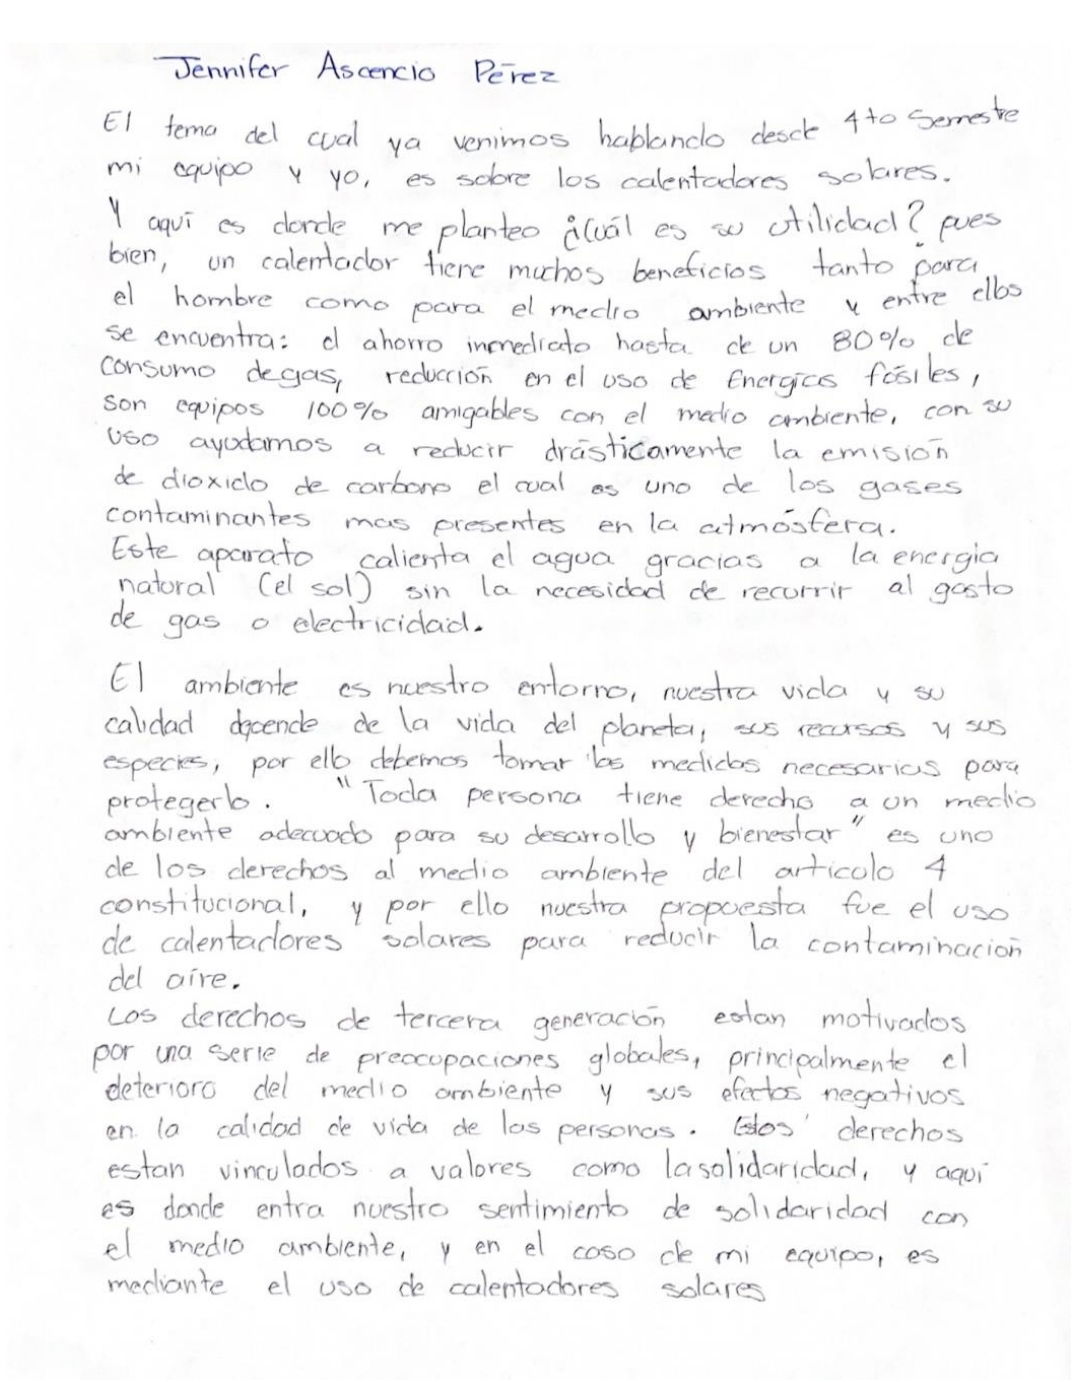 Jennifer Ascencio Pérez
El tema del cual ya venimos hablando desde 4to Semestre
mi equipo y yo, es sobre los calentadores solares.
Y aquí es donde me planteo ¿Cuál es su utilidad? pues
bien, un calentador tiene muchos beneficios tanto para
el hombre como para el medio ambiente y entre ellos
se encuentra: el ahorro inmediato hasta de un 80% de
consumo de gas, reducción en el uso de Energías fósiles,
Son equipos 100% amigables con el medio ambiente, con su
uso ayudamos a reducir drásticamente la emisión
de dioxido de carbono el cual es uno de los gases
contaminantes mas presentes en la atmósfera.
Este aparato calienta el agua gracias a la energia
natural (el sol) sin la necesidad de recurrir al gasto
de gas o electricidad.
El ambiente es nuestro entorno, nuestra vida y su
calidad depende de la vida del planeta, sus recursos y sus
especies, por ello debemos tomar las medidas necesarias para
protegerlo. "Toda persona tiene derecho a un medio
ambiente adecuado para su desarrollo y bienestar" es uno
de los derechos al medio ambiente del articulo 4
constitucional, y por ello nuestra propuesta fue el uso
de calentadores solares para reducir la contaminación
del aire.
Los derechos de tercera generación estan motivados
por una serie de preocupaciones globales, principalmente el
deterioro del medio ambiente y sus efectos negativos
en la calidad de vida de las personas. Estos derechos
estan vinculados a valores como la solidaridad, y aquí
es donde entra nuestro sentimiento de solidaridad con
el medio ambiente, y en el caso de mi equipo, es
mediante el uso de calentadores solares